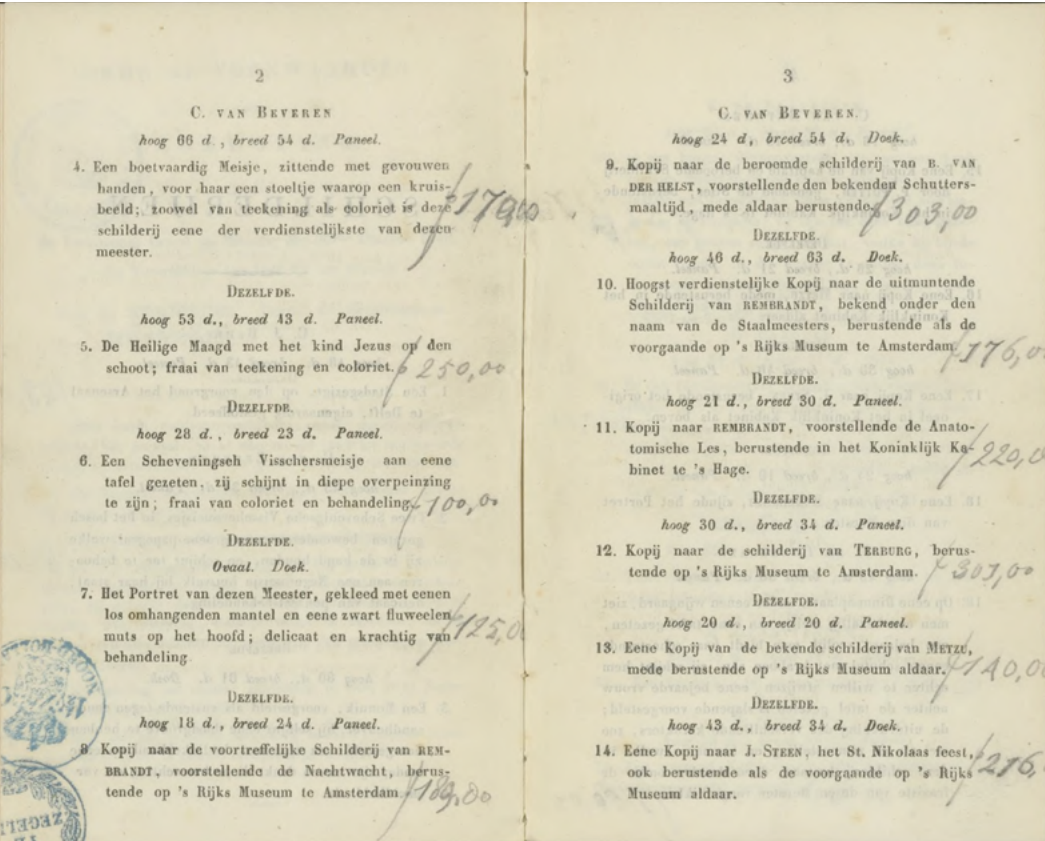 2
C. VAN BEVEREN
hoog 66 d., breed 54 d. Paneel.
4. Een boetvaardig Meisje, zittende met gevouwen
handen, voor haar een stoeltje waarop een kruis-
beeld; zoowel van teekening als coloriet is deze
schilderij eene der verdienstelijkste van dezen
meester.
ƒ 179,00
DEZELFDE.
hoog 53 d., breed 43 d. Paneel.
5. De Heilige Maagd met het kind Jezus op den
schoot; fraai van teekening en coloriet. ƒ 250,00
DEZELFDE.
hoog 28 d., breed 23 d. Paneel.
6. Een Scheveningsch Visschersmeisje aan eene
tafel gezeten, zij schijnt in diepe overpeinzing
te zijn; fraai van coloriet en behandeling. ƒ 100,00
DEZELFDE.
Ovaal. Doek.
7. Het Portret van dezen Meester, gekleed met eenen
los omhangenden mantel en eene zwart fluweelen
muts op het hoofd; delicaat en krachtig van ƒ 125,0
behandeling
DEZELFDE.
hoog 18 d., breed 24 d. Paneel.
8. Kopij naar de voortreffelijke Schilderij van REM-
BRANDT, voorstellende de Nachtwacht, berus-
tende op 's Rijks Museum te Amsterdam ƒ 169,00
3
C. VAN BEVEREN.
hoog 24 d, breed 54 d. Doek.
9. Kopij naar de beroemde schilderij van B. VAN
DER HELST, voorstellende den bekenden Schutters-
maaltijd, mede aldaar berustende. ƒ 303,00
DEZELFDE.
hoog 46 d., breed 63 d. Doek.
10. Hoogst verdienstelijke Kopij naar de uitmuntende
Schilderij van REMBRANDT, bekend onder den
naam van de Staalmeesters, berustende als de
voorgaande op 's Rijks Museum te Amsterdam. ƒ 176,0
DEZELFDE.
hoog 21 d., breed 30 d. Paneel.
11. Kopij naar REMBRANDT, voorstellende de Anato-
tomische Les, berustende in het Koninklijk Ka-
binet te 's Hage. ƒ 220,0
DEZELFDE.
hoog 30 d., breed 34 d. Paneel.
12. Kopij naar de schilderij van TERBURG, berus-
tende op 's Rijks Museum te Amsterdam. ƒ 301,00
DEZELFDE.
hoog 20 d., breed 20 d. Paneel.
13. Eene Kopij van de bekende schilderij van METZU,
mede berustende op 's Rijks Museum aldaar. ƒ 140,00
DEZELFDE.
hoog 43 d., breed 34 d. Doek.
14. Eene Kopij naar J. STEEN, het St. Nikolaas feest,
ook berustende als de voorgaande op 's Rijks ƒ 216,
Museum aldaar.